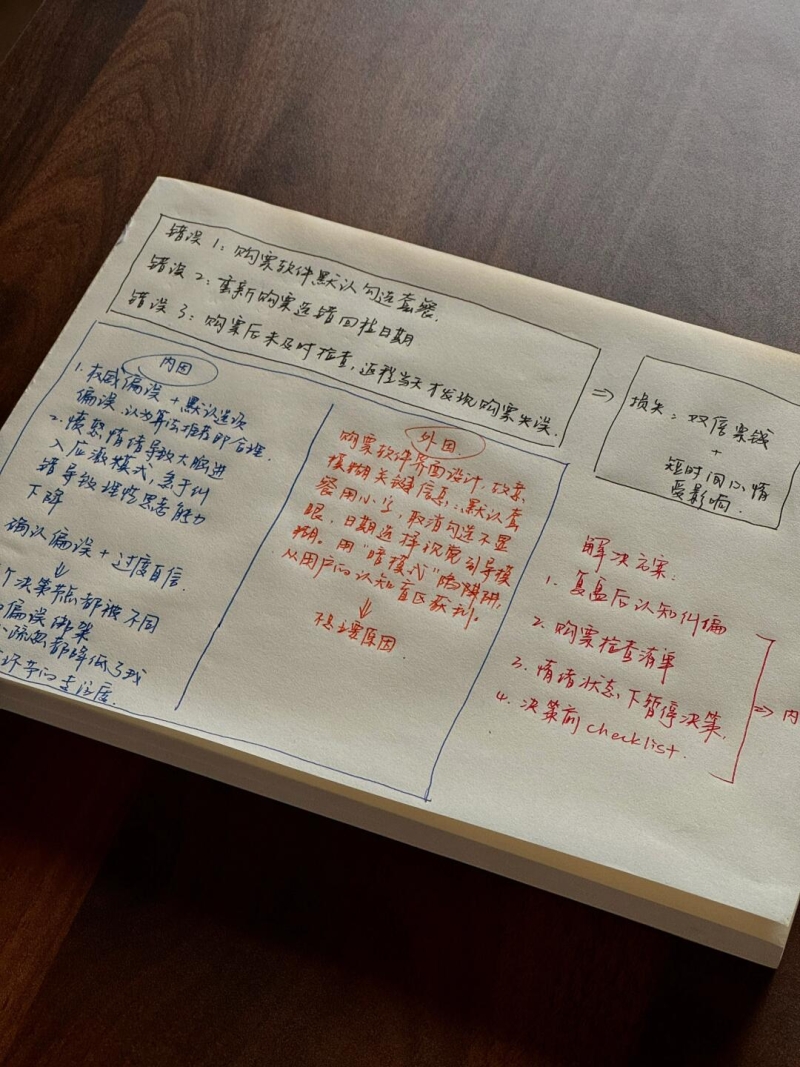 错误1：购票软件默认勾选套餐.
错误2：重新购票选错回程日期
错误3：购票后未及时检查，返程当天才发现购票失误.
⇒
损失：双倍票钱
+
短时间心情
受影响.
内因
1. 权威偏误 + 默认选项
偏误，认为算法推荐即合理.
2. 愤怒情绪导致大脑进
入应激模式，急于纠
错导致理性思考能力
下降
确认偏误 + 过度自信.
↓
个决策节点都被不同
偏误绑架
疏忽都降低了我
环节的专注度.
外因
购票软件界面设计，故意
模糊关键信息：默认套
餐用小字，取消勾选不显
眼，日期选择视觉引导模
糊。用“暗模式”的陷阱，
从用户的认知盲区获利。
↓
不是主要原因
解决方案：
1. 复盘后认知纠偏
2. 购票检查清单
3. 情绪状态下暂停决策.
4. 决策前checklist.
⇒ 内